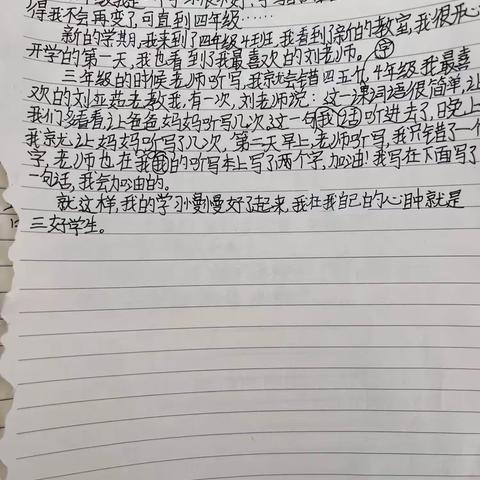 得我不会再变了,可直到四年级……
新的学期,我来到了四年级4班,我看到了新的教室,我很开心
开学的第一天,我也看到了我最喜欢的刘老师。
三年级的时候老师听写,我就会错四五个字,4年级我最喜
欢的刘亚茹老教我,有一次,刘老师说:这一课词语很简单,让
我们多看看,让爸爸妈妈听写几次,这一句我话听进去了,日晚上
我就让妈妈听写了几次,第二天早上,老师听写,我只错了一个
字,老师也在我我的听写本上写了两个字,加油!我写在下面写了
一句话,我会加油的。
就这样,我的学习慢慢好了起来,我在我自己的心中就是
三好学生。